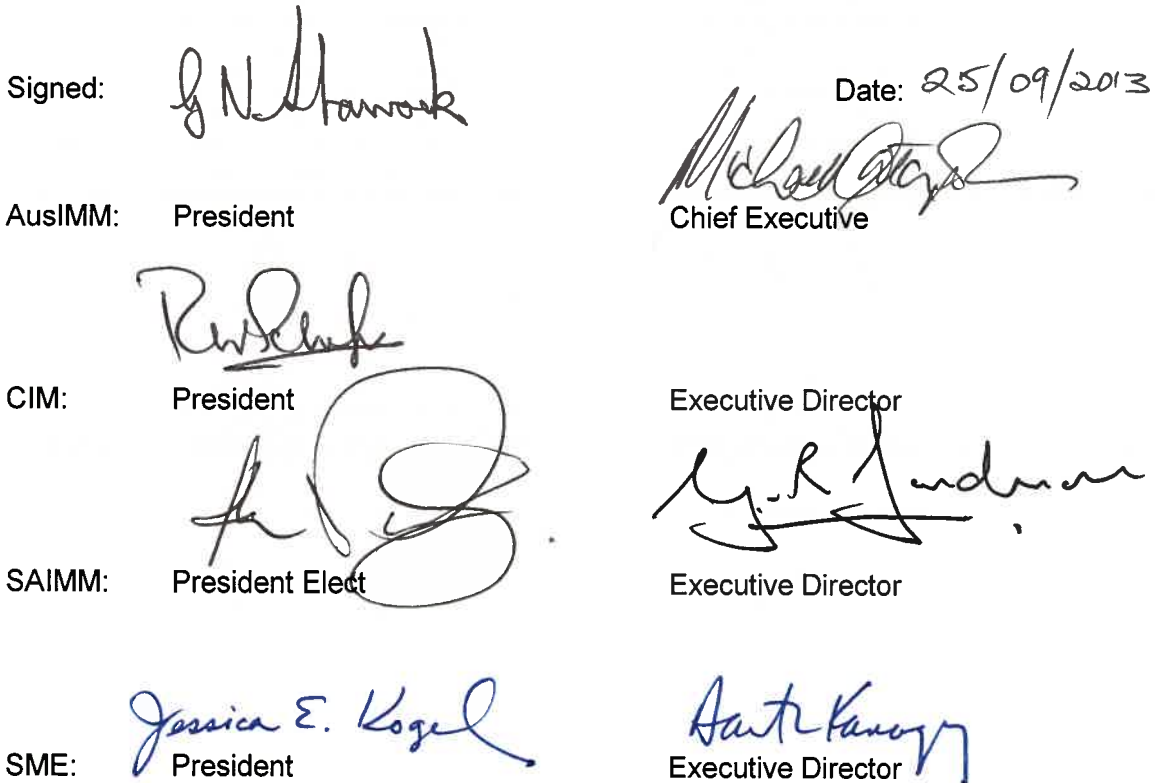 Signed: G N Date: 25/09/2013
Michael
AusIMM: President Chief Executive
CIM: President Executive Director
G. R.
SAIMM: President Elect Executive Director
Jessica E. Kogel
SME: President Executive Director